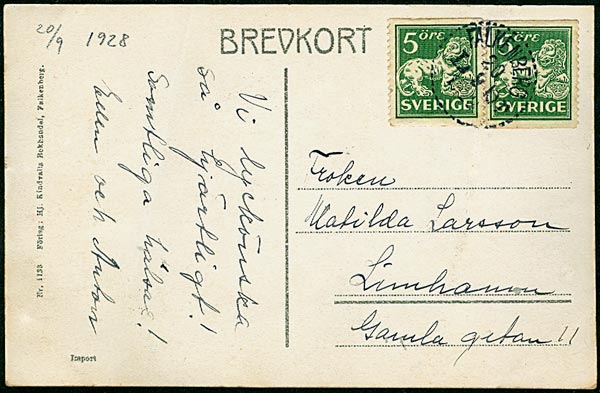 20/9 1928
BREVKORT
5 ÖRE
SVERIGE
ÖRE
SVERIGE
Vi lyckönska
så hjärtligt!
Samtliga hälsa!
Ellen och Anton
Fröken
Matilda Larsson
Limhamn
Gamla getan 11
Nr. 1133 Förlag: Hj. Kindvalls Bokhandel, Falkenberg.
Import